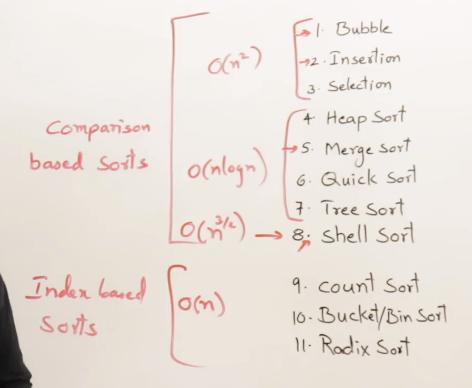 Comparison
based Sorts
O(n²)
1. Bubble
2. Insertion
3. Selection
O(nlogn)
4. Heap Sort
5. Merge sort
6. Quick Sort
7. Tree Sort
O(n^3/2)
8. Shell Sort
Index based
Sorts
O(n)
9. Count Sort
10. Bucket/Bin Sort
11. Radix Sort